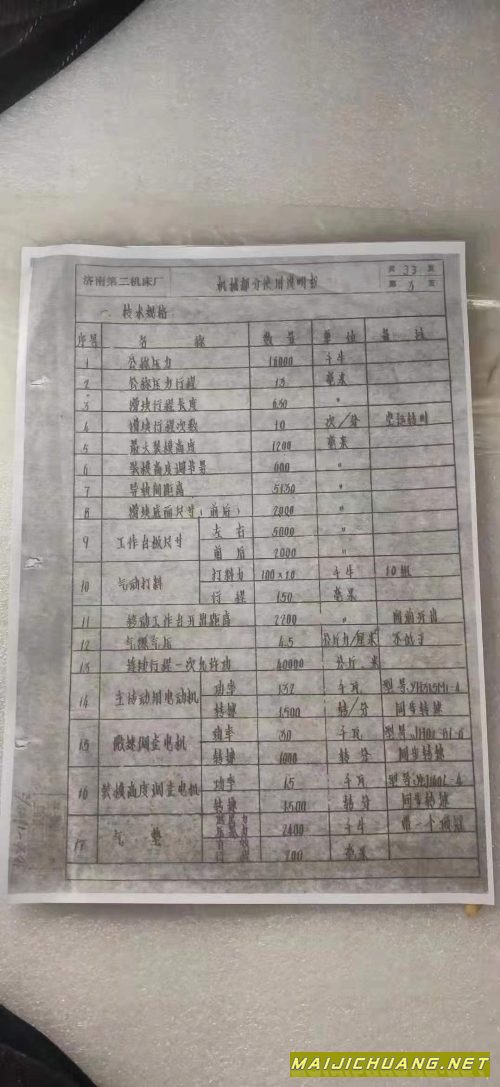 济南第二机床厂 机械部分使用说明书 共 33 页
第 3 页
一、技术规格
序号 名 称 数量 单位 备注
1 公称压力 16000 千牛
2 公称压力行程 13 毫米
3 滑块行程长度 630 〃
4 滑块行程次数 10 次/分 空运转时
5 最大装模高度 1200 毫米
6 装模高度调节量 600 〃
7 导轨间距离 5130 〃
8 滑块底面尺寸(前后) 2000 〃
9 工作台板尺寸 左右 5000 〃
前后 2000 〃
10 气动打料 打料力 100×10 千牛 10组
行程 150 毫米
11 移动工作台开出距离 2200 〃 向前开出
12 气源气压 4.5 公斤力/厘米 不低于
13 连续行程一次允许功 40000 公斤.米
14 主传动用电动机 功率 132 千瓦 型号
转速 1500 转/分 同步转速
15 微速调整电机 功率 30 千瓦 型号
转速 1000 转/分 同步转速
16 装模高度调整电机 功率 15 千瓦 型号
转速 1500 转/分 同步转速
17 气垫 2400 千牛 带一个顶冠
200 毫米
MAIJICHUANG.NET